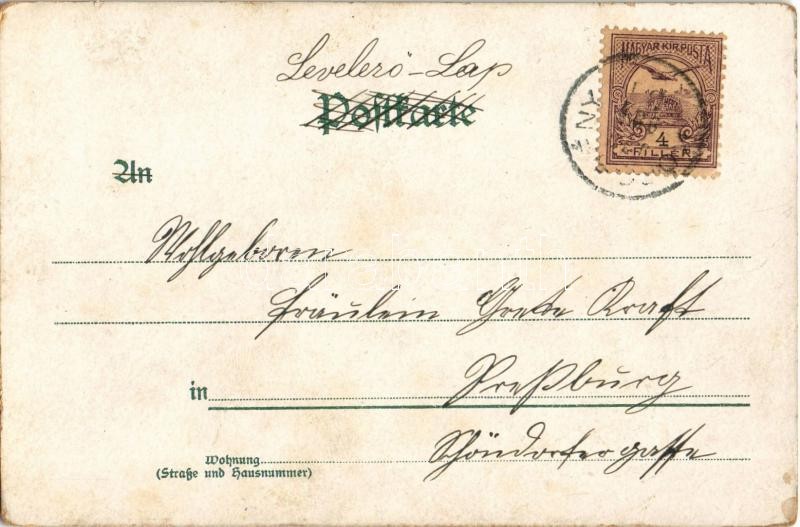 Levelerő-Lap
Postkarte
MAGYAR KIR. POSTA
4
FILLÉR
NY
An
Wohlgeboren
Fräulein Grete Kraft
in Preßburg
Wohnung Schöndorfergasse
(Straße und Hausnummer)